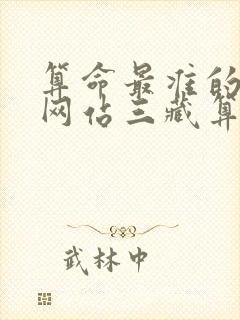 算命最准的
网站三藏算
武林中